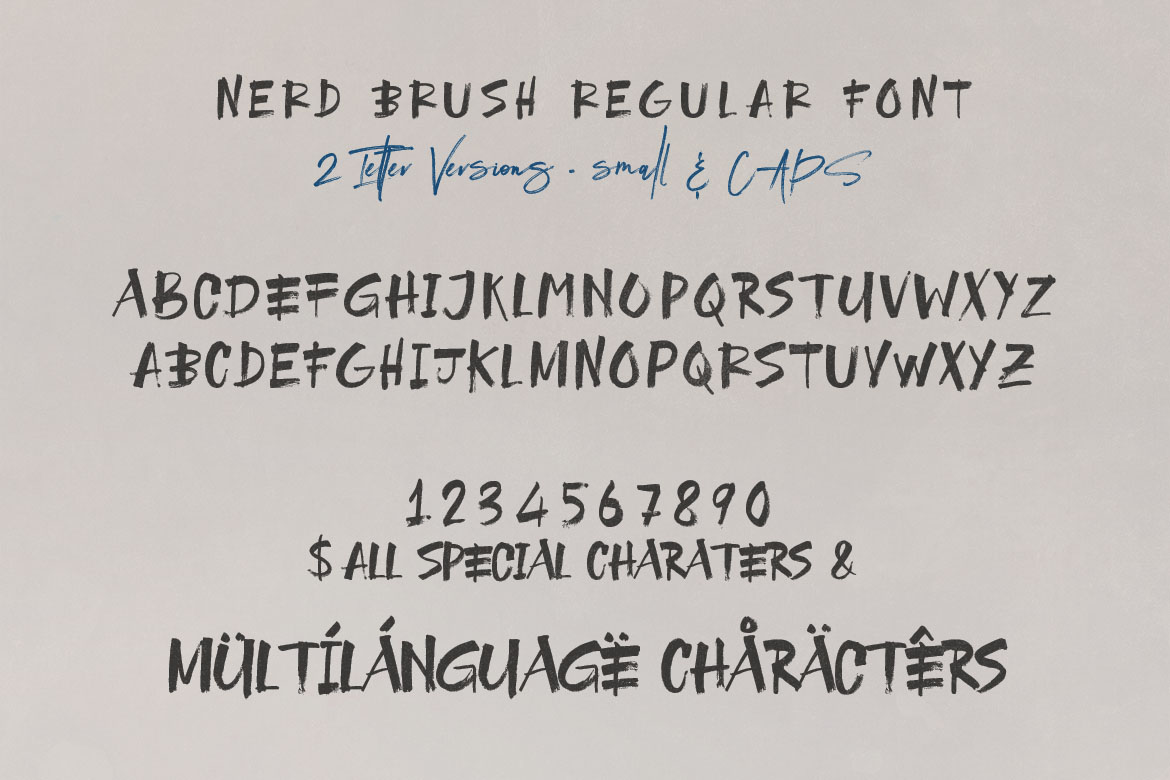 NERD BRUSH REGULAR FONT
2 letter Versions - small & CAPS
ABCDEFGHIJKLMNOPQRSTUVWXYZ
ABCDEFGHIJKLMNOPQRSTUVWXYZ
1234567890
$ ALL SPECIAL CHARATERS &
MÜLTÍLÁNGUAGË CHÅRÄCTÊRS